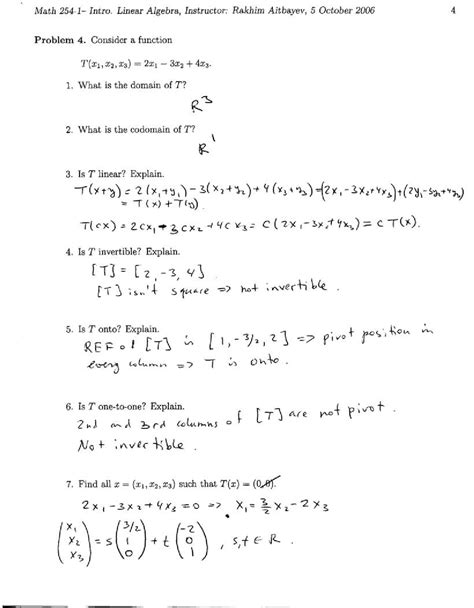 Math 254-1– Intro. Linear Algebra, Instructor: Rakhim Aitbayev, 5 October 2006 4
Problem 4. Consider a function
T(x₁, x₂, x₃) = 2x₁ − 3x₂ + 4x₃.
1. What is the domain of T?
R³
2. What is the codomain of T?
R¹
3. Is T linear? Explain.
T(x+y) = 2(x₁+y₁) − 3(x₂+y₂) + 4(x₃+y₃) = (2x₁ − 3x₂ + 4x₃) + (2y₁ − 3y₂ + 4y₃)
= T(x) + T(y).
T(cx) = 2cx₁ − 3cx₂ + 4cx₃ = c(2x₁ − 3x₂ + 4x₃) = cT(x).
4. Is T invertible? Explain.
[T] = [2, −3, 4]
[T] isn't square => not invertible.
5. Is T onto? Explain.
REF of [T] is [1, −3/2, 2] => pivot position in
every column => T is onto.
6. Is T one-to-one? Explain.
2nd and 3rd columns of [T] are not pivot.
Not invertible.
7. Find all x = (x₁, x₂, x₃) such that T(x) = (0, 0).
2x₁ − 3x₂ + 4x₃ = 0 => x₁ = 3/2 x₂ − 2x₃
(x₁ x₂ x₃) = s (3/2 1 0) + t (−2 0 1), s,t ∈ R.